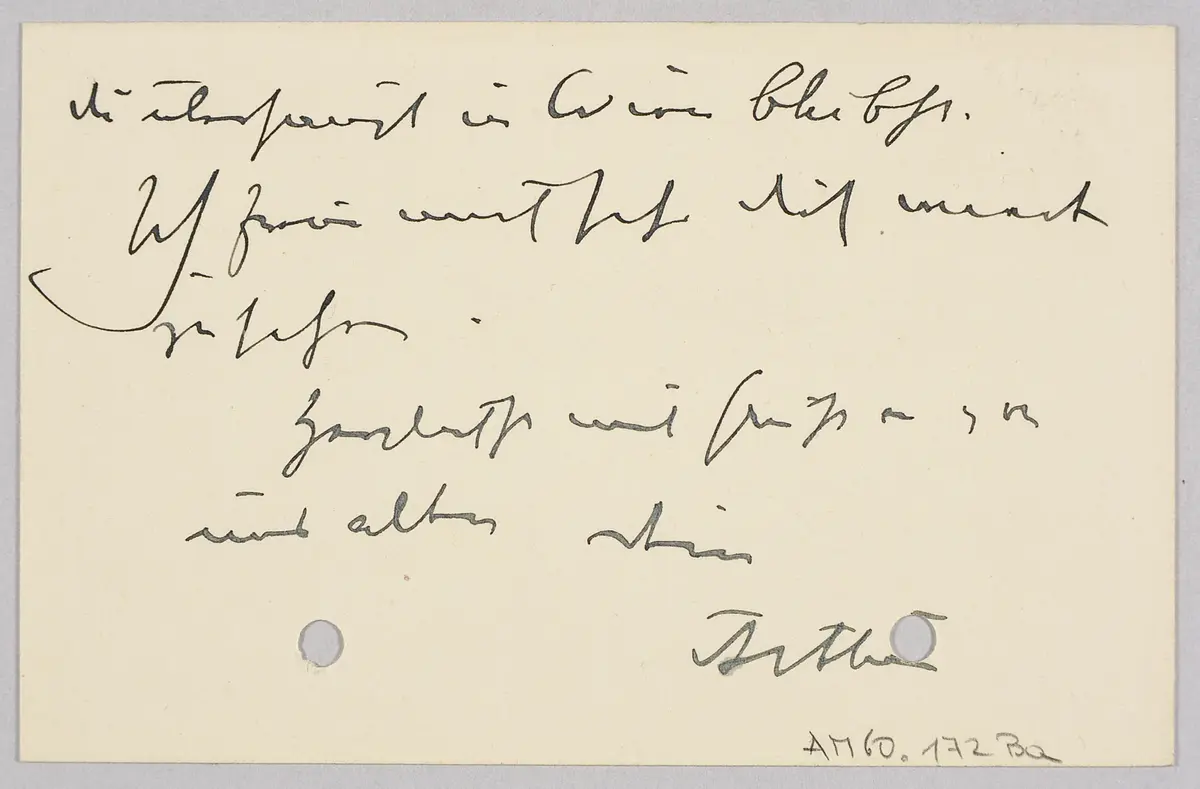 du überhaupt in Wien bleibst.
Ich freue mich sehr dich
zu sehen.
Herzlichst mit Grüßen
dein
Arthur
AM60.172 Ba